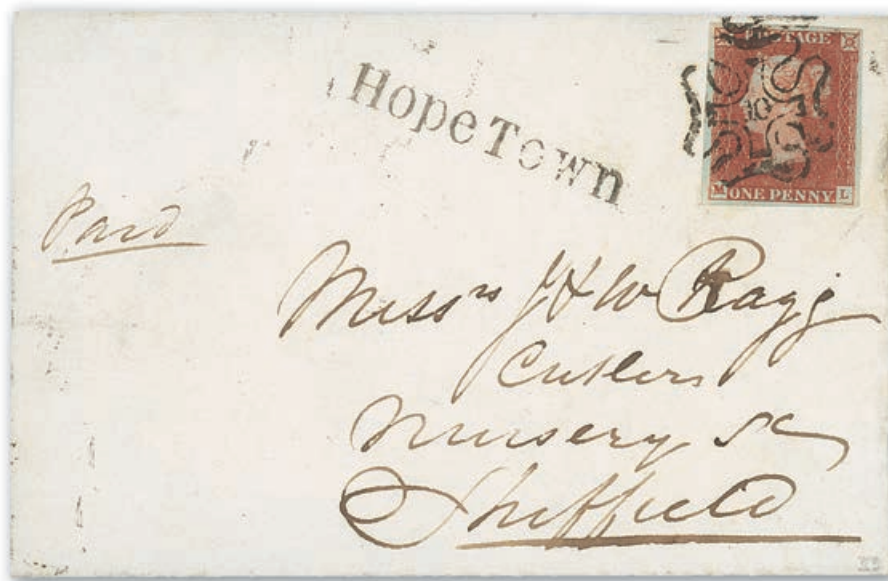 POSTAGE
10
M ONE PENNY L
Hope Town
Paid
Messrs J & W Ragg
Cutlers
Nursery St
Sheffield